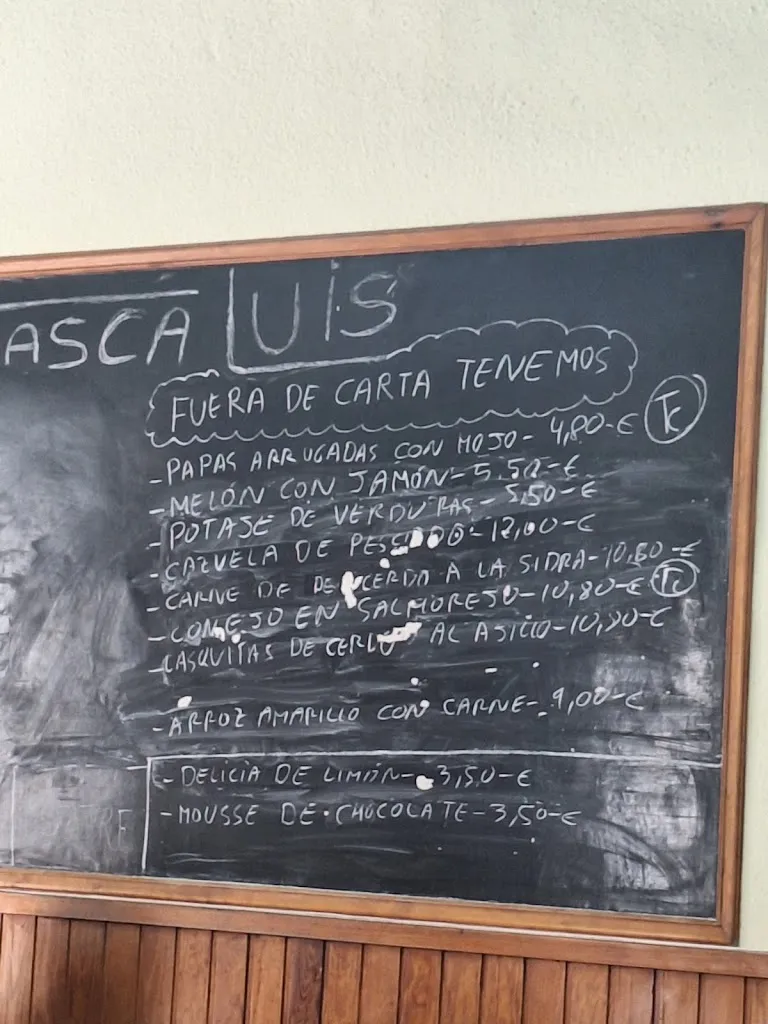 ASCA LUIS
FUERA DE CARTA TENEMOS
-PAPAS ARRUGADAS CON MOJO- 4,80-€ TC
-MELÓN CON JAMÓN-5.50-€
-POTAJE DE VERDURAS-5,50-€
-CAZUELA DE PESCADO-12,00-€
-CARNE DE CERDO A LA SIDRA-10,80-€
-CONEJO EN SALMOREJO-10,80-€ TC
-LASQUITAS DE CERDO AL AJILLO-10,90-€
-ARROZ AMARILLO CON CARNE-9,00-€
-DELICIA DE LIMÓN-3,50-€
-MOUSSE DE CHOCOLATE-3,50-€